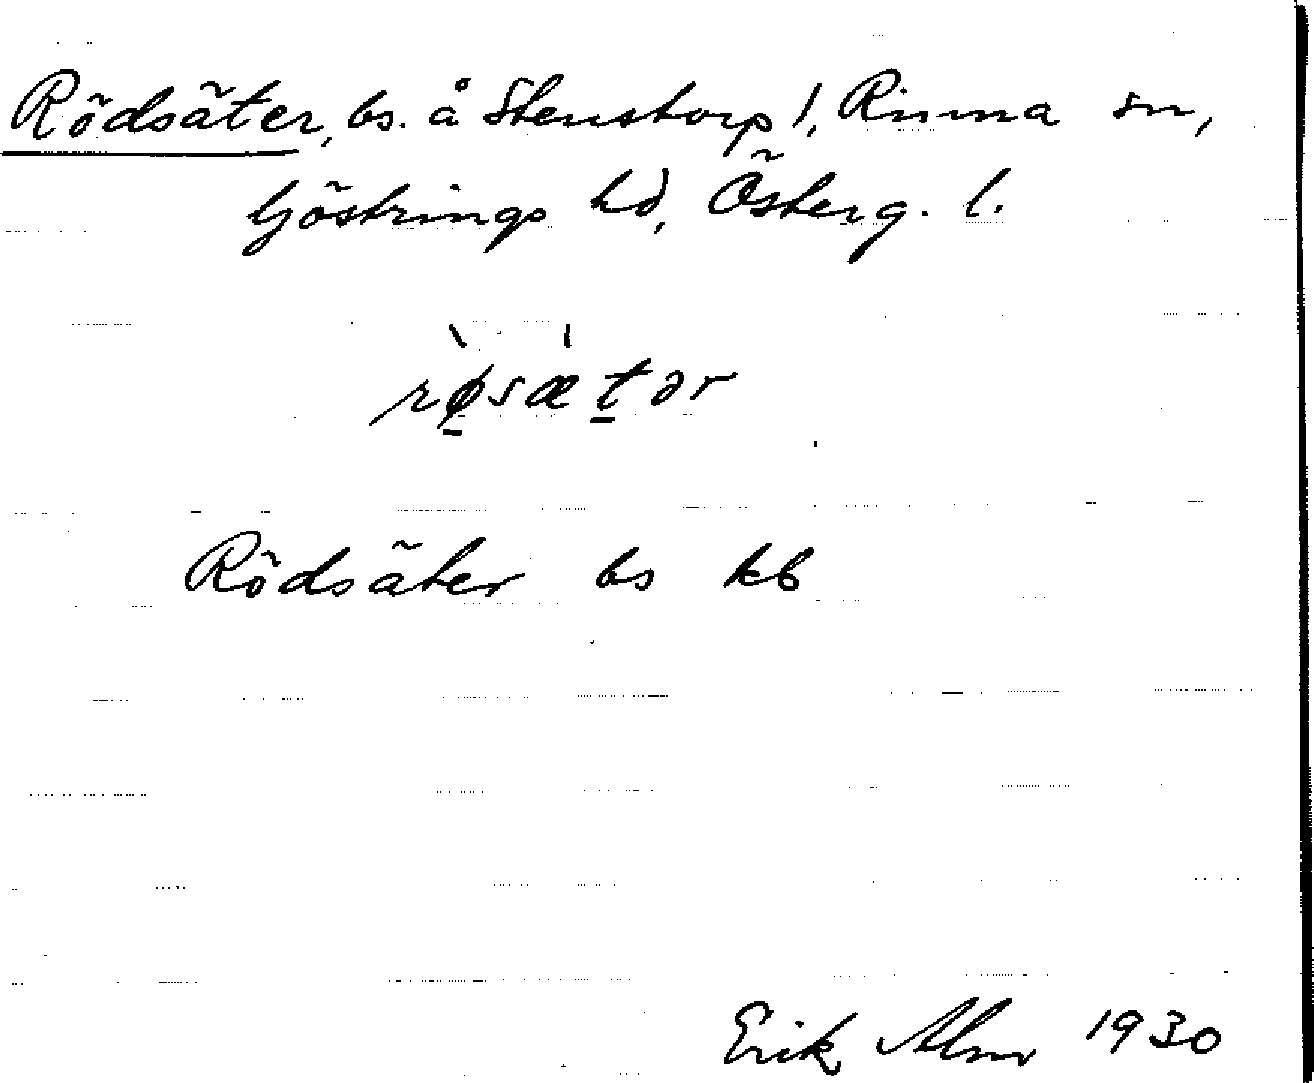 Rödsäter, bs. å Stenstorp 1, Rinna sn,
Göstrings hd, Österg. l.
rø̱̀sæ̍ṯər
Rödsäter bs kb
Erik Alm 1930